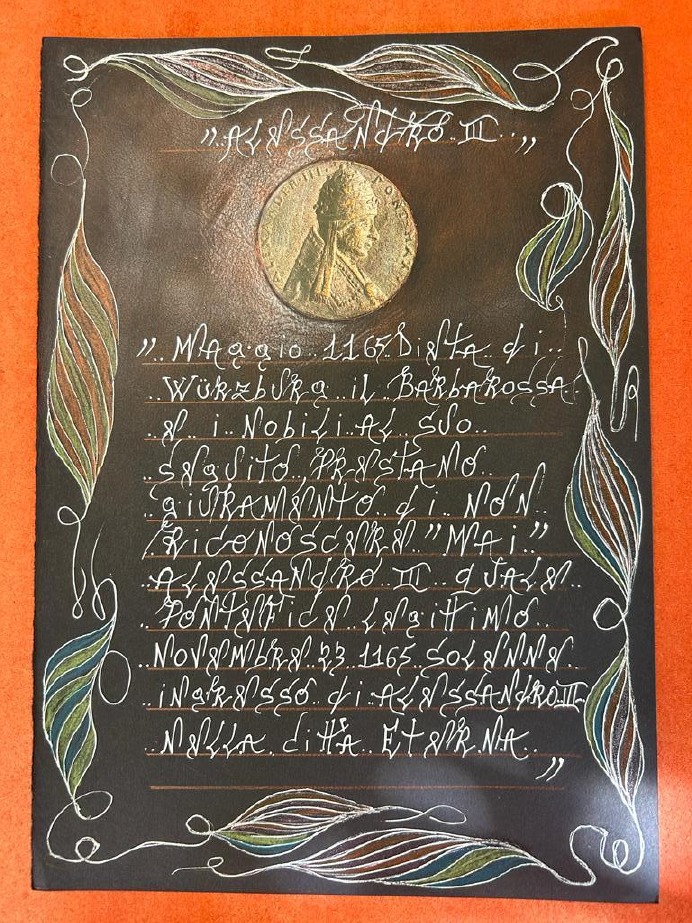 "ALESSANDRO III"
".. MAGGIO 1165 DIETA di..
..WÜRZBURG iL BARBAROSSA
E i NObiLi AL SUO..
..SEGUITO PRESTANO..
..GIURAMENTO di NON..
RICONOSCERE "MAi"
ALESSANDRO III QUALE..
..PONTEFICE LEGITTIMO..
..NOVEMBRE 23 1165 SOLENNE..
..iNGRESSO di ALESSANDRO III
..NELLA CiTTÀ ETERNA.."